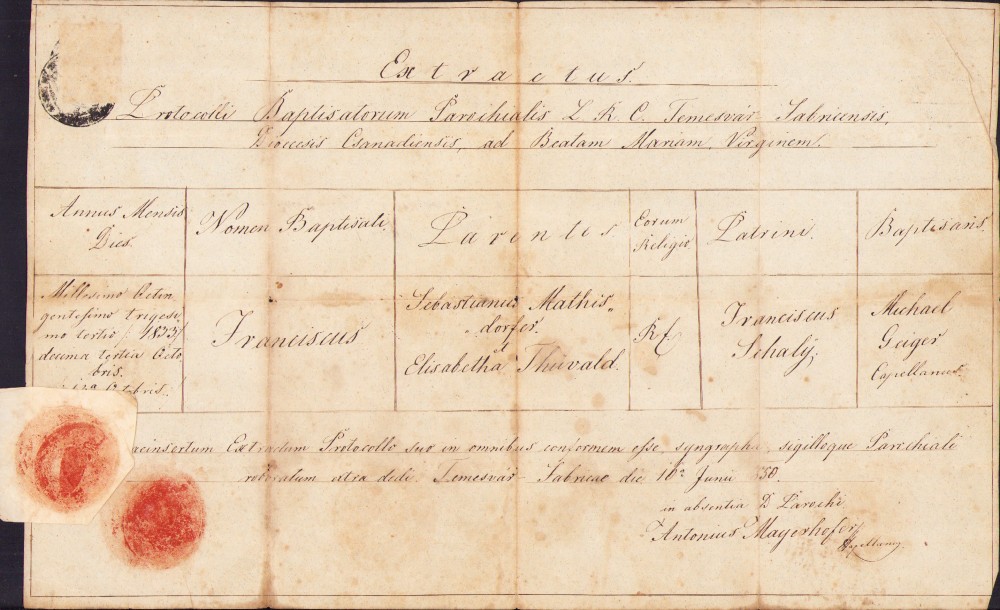 Extractus.
Protocolli Baptisatorum Parochialis L. R. C. Temesvár Fabricensis,
Dioecesis Csanadiensis, ad Beatam Mariam Virginem.
Annus Mensis
Dies.
Nomen Baptisati
Parentes
Eorum
Religio
Patrini
Baptisans.
Millesimo Octin
gentesimo trigesi
mo tertio / 1833/
decima tertia Octo
bris.
Octobris.
Franciscus
Sebastianus Mathis„
„dorfer.
et
Elisabetha Thüvald.
R C
Franciscus
Schalÿ;
Michael
Geiger
Capellanus.
Extractum Protocollo suo in omnibus conformem esse, syngrapha, sigilloque Parochiali
roboratum extra dedi. Temesvár Fabricae die 10a Junii 850.
in absentia D Parochi
Antonius Mayerhofer
Capellanus.